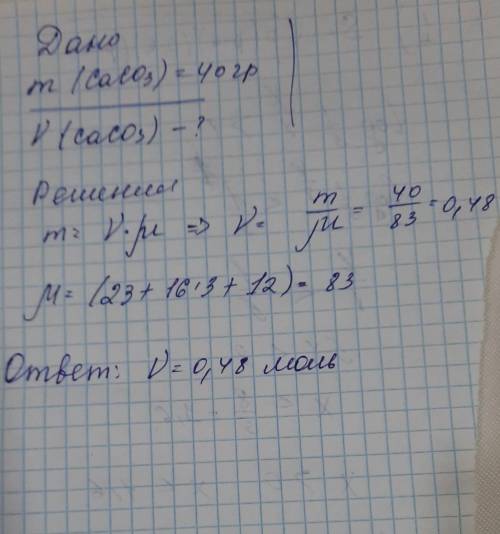 Дано
m (CaCO₃) = 40 гр
ν (CaCO₃) - ?
Решении
m = ν·μ => ν = m/μ = 40/83 = 0,48
μ = (23 + 16·3 + 12) = 83
Ответ: ν = 0,48 моль